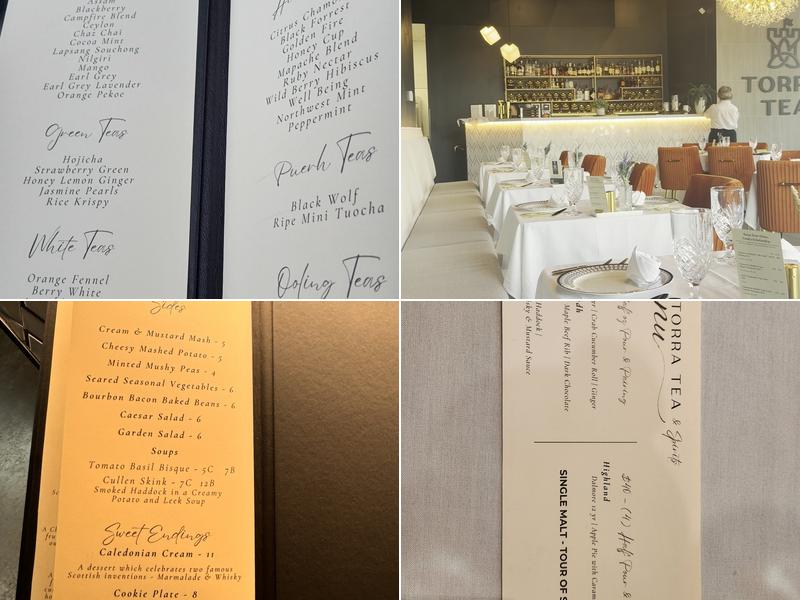 Assam
Blackberry
Campfire Blend
Ceylon
Chaz Chai
Cocoa Mint
Lapsang Souchong
Nilgiri
Mango
Earl Grey
Earl Grey Lavender
Orange Pekoe
Green Teas
Hojicha
Strawberry Green
Honey Lemon Ginger
Jasmine Pearls
Rice Krispy
White Teas
Orange Fennel
Berry White
Citrus Chamo
Black Forrest
Golden Fire
Honey Cup
Mapache Blend
Ruby Nectar
Wild Berry Hibiscus
Well Being
Northwest Mint
Peppermint
Puerh Teas
Black Wolf
Ripe Mini Tuocha
Ooling Teas
TORR
TEA
Sides
Cream & Mustard Mash - 5
Cheesy Mashed Potato - 5
Minted Mushy Peas - 4
Seared Seasonal Vegetables - 6
Bourbon Bacon Baked Beans - 6
Caesar Salad - 6
Garden Salad - 6
Soups
Tomato Basil Bisque - 5C 7B
Cullen Skink - 7C 12B
Smoked Haddock in a Creamy
Potato and Leek Soup
Sweet Endings
Caledonian Cream - 11
A dessert which celebrates two famous
Scottish inventions - Marmalade & Whisky
Cookie Plate - 8
TORRA TEA & Spirits
nu
alf oz Pour & Pairing
yr | Crab Cucumber Roll | Ginger
Maple Beef Rib | Dark Chocolate
Haddock |
sky & Mustard Sauce
$40 - (4) Half Pour &
Highland
Dalmore 12 yr | Apple Pie with Caram
SINGLE MALT - TOUR OF S